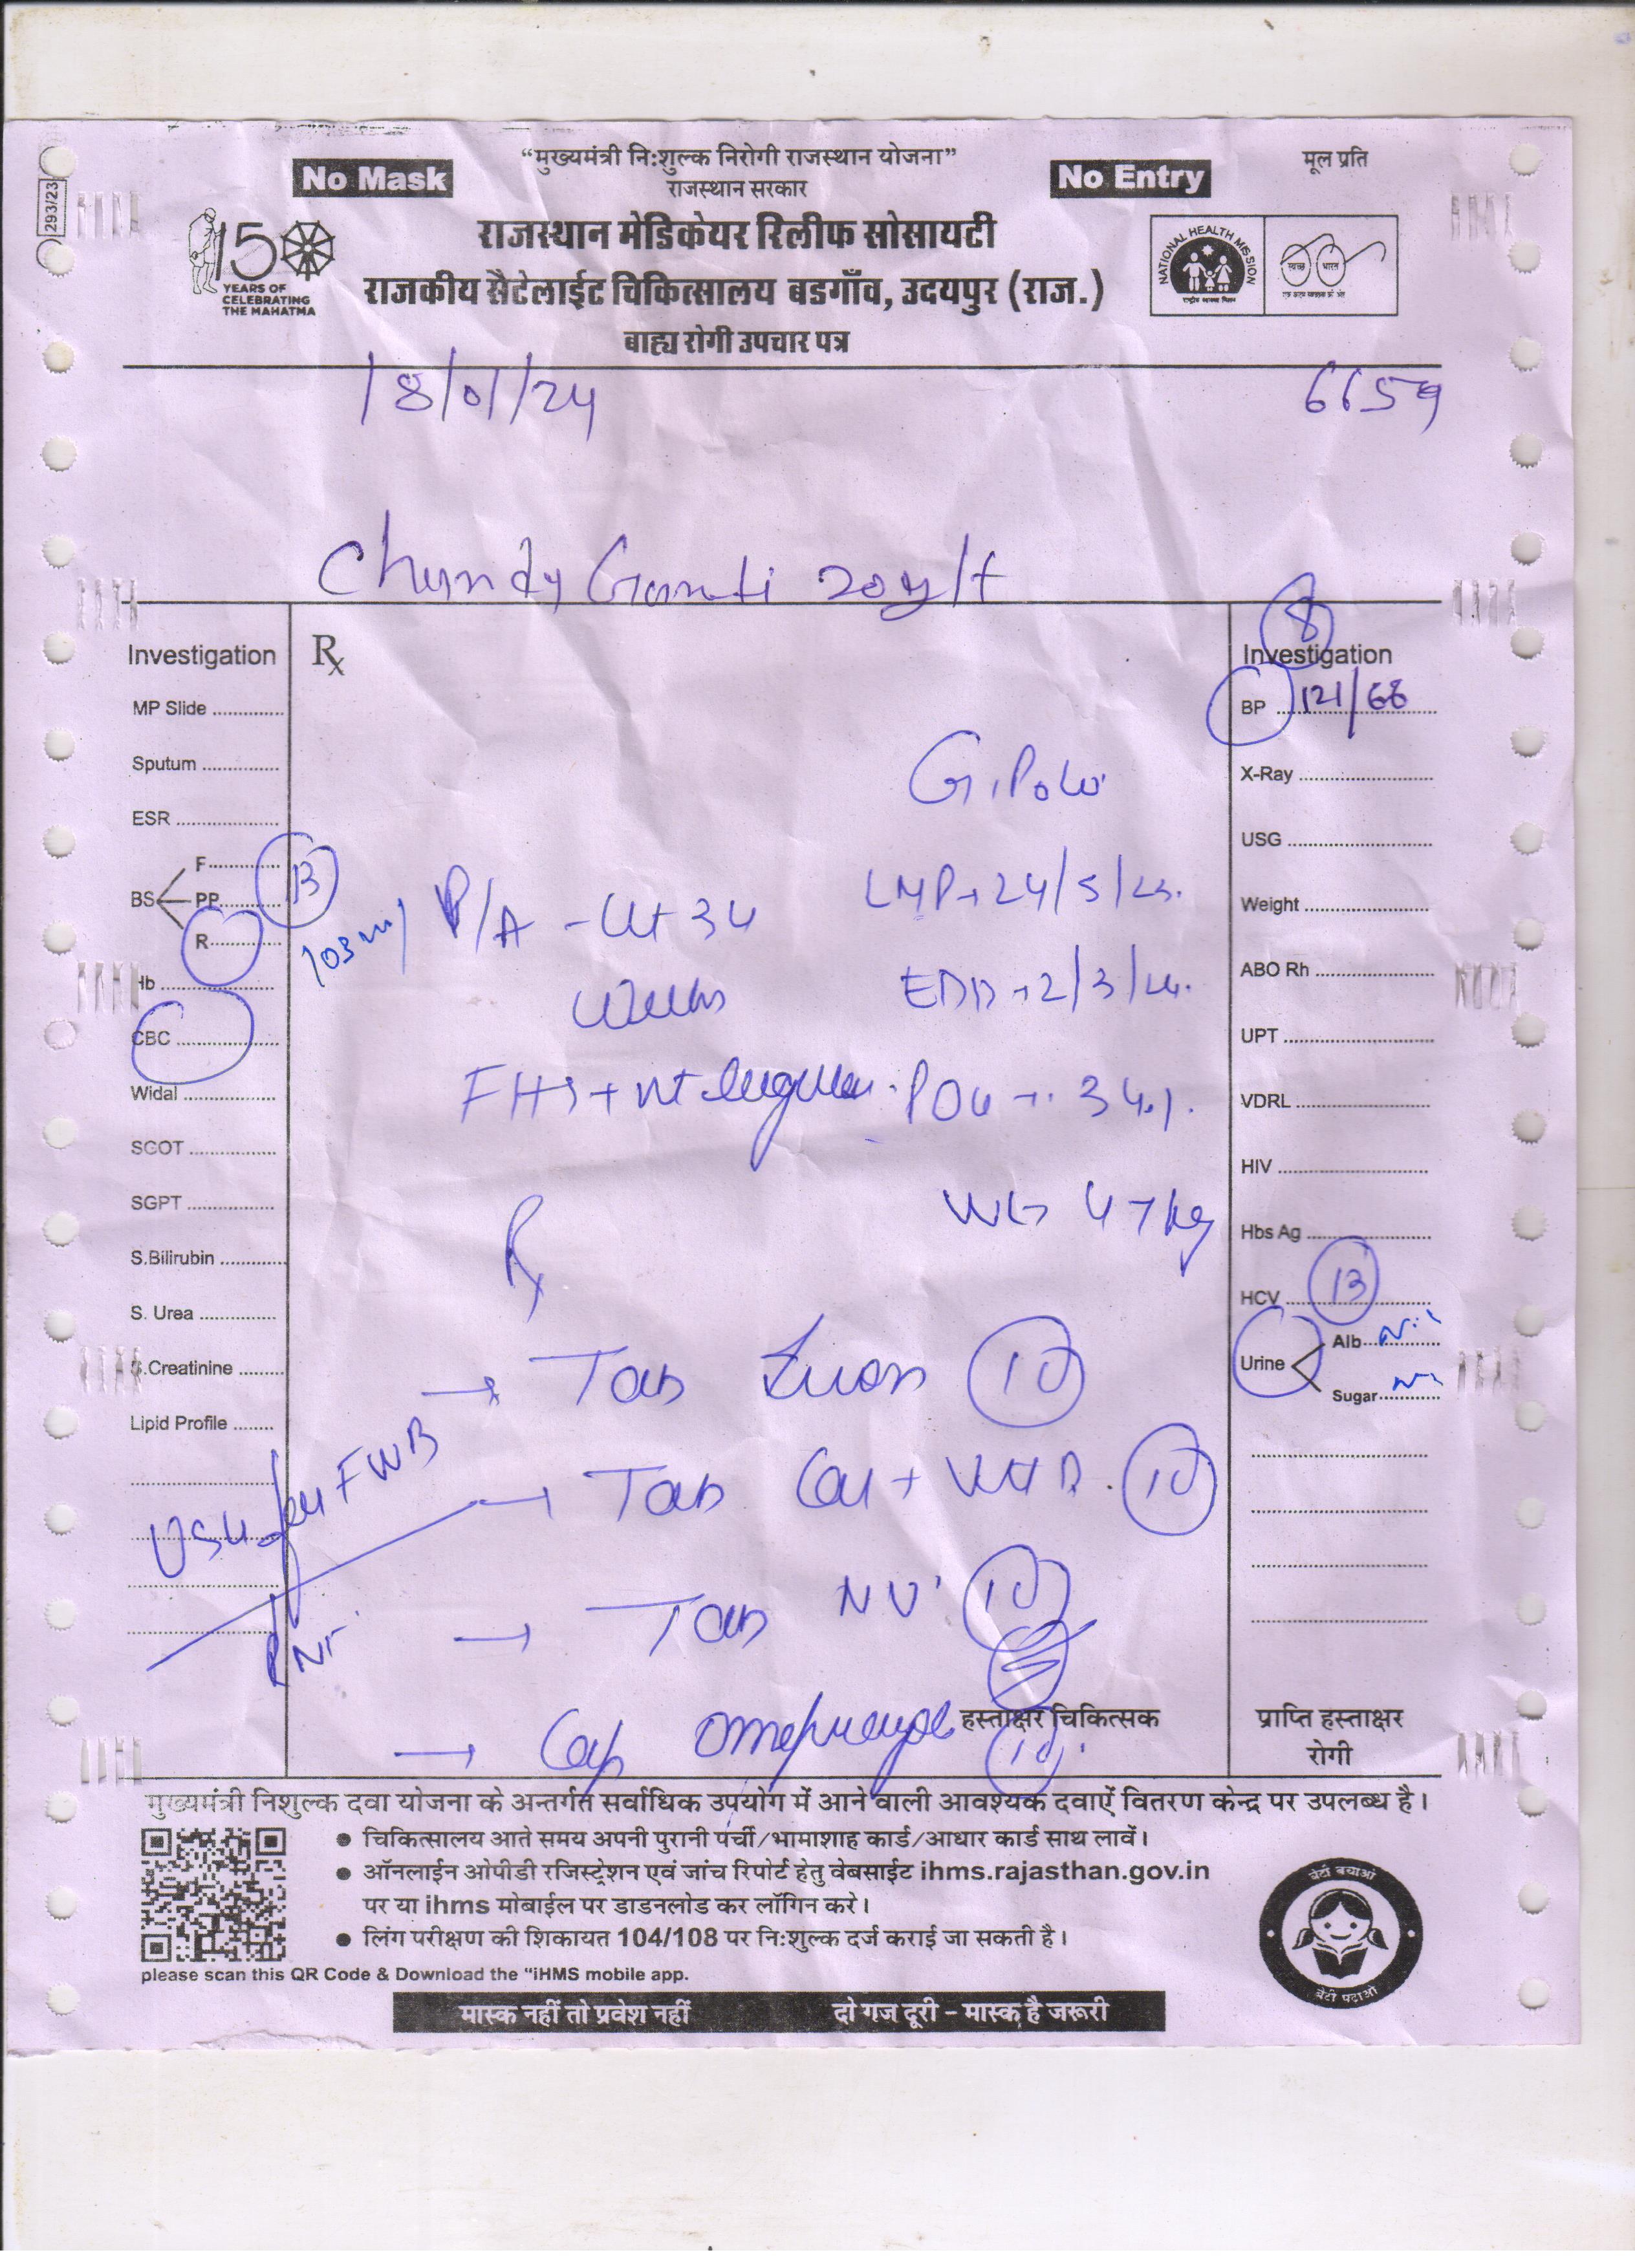 293/23
No Mask
"मुख्यमंत्री नि:शुल्क निरोगी राजस्थान योजना"
No Entry
मूल प्रति
राजस्थान सरकार
150
YEARS OF
CELEBRATING
THE MAHATMA
राजस्थान मेडिकेयर रिलीफ सोसायटी
राजकीय सैटेलाईट चिकित्सालय बडगाँव, उदयपुर (राज.)
बाह्य रोगी उपचार पत्र
NATIONAL HEALTH MISSION
राष्ट्रीय स्वास्थ्य मिशन
स्वच्छ भारत
एक कदम स्वच्छता की ओर
18/01/24
6659
20y/f
Investigation
Rx
8
Investigation
MP Slide
BP 121/68
Sputum
X-Ray
ESR
USG
BS F
PP
R
13
103 m/
Weight
Hb
ABO Rh
CBC
UPT
Widal
VDRL
SCOT
HIV
SGPT
Hbs Ag
S.Bilirubin
HCV 13
S. Urea
Urine Alb Nil
S.Creatinine
Sugar Nil
Lipid Profile
P/A - Ut 34
LMP → 24/5/23.
EDD → 2/3/24.
FHS +
34.1
Wt → 47kg
Rx
→ Tab 10
→ Tab Cal + Vit D. 10
→ Tab 10
→ Cap Omeprazole 10
FWB
हस्ताक्षर चिकित्सक
प्राप्ति हस्ताक्षर
रोगी
मुख्यमंत्री निशुल्क दवा योजना के अन्तर्गत सर्वाधिक उपयोग में आने वाली आवश्यक दवाऐं वितरण केन्द्र पर उपलब्ध है।
• चिकित्सालय आते समय अपनी पुरानी पर्ची/भामाशाह कार्ड/आधार कार्ड साथ लावें।
• ऑनलाईन ओपीडी रजिस्ट्रेशन एवं जांच रिपोर्ट हेतु वेबसाईट ihms.rajasthan.gov.in
पर या ihms मोबाईल पर डाडनलोड कर लॉगिन करे।
• लिंग परीक्षण की शिकायत 104/108 पर नि:शुल्क दर्ज कराई जा सकती है।
please scan this QR Code & Download the "iHMS mobile app.
बेटी बचाओ
बेटी पढ़ाओ
मास्क नहीं तो प्रवेश नहीं
दो गज दूरी - मास्क है जरूरी